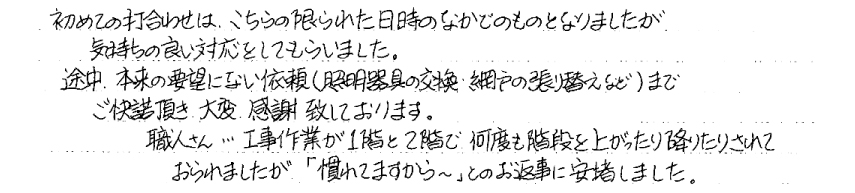 初めての打合わせは、こちらの限られた日時のなかでのものとなりましたが
気持ちの良い対応をしてもらいました。
途中、本来の要望にない依頼(照明器具の交換・網戸の張り替えなど)まで
ご快諾頂き 大変 感謝 致しております。
職人さん…工事作業が1階と2階で 何度も階段を上がったり降りたりされて
おられましたが「慣れてますから〜」とのお返事に安堵しました。